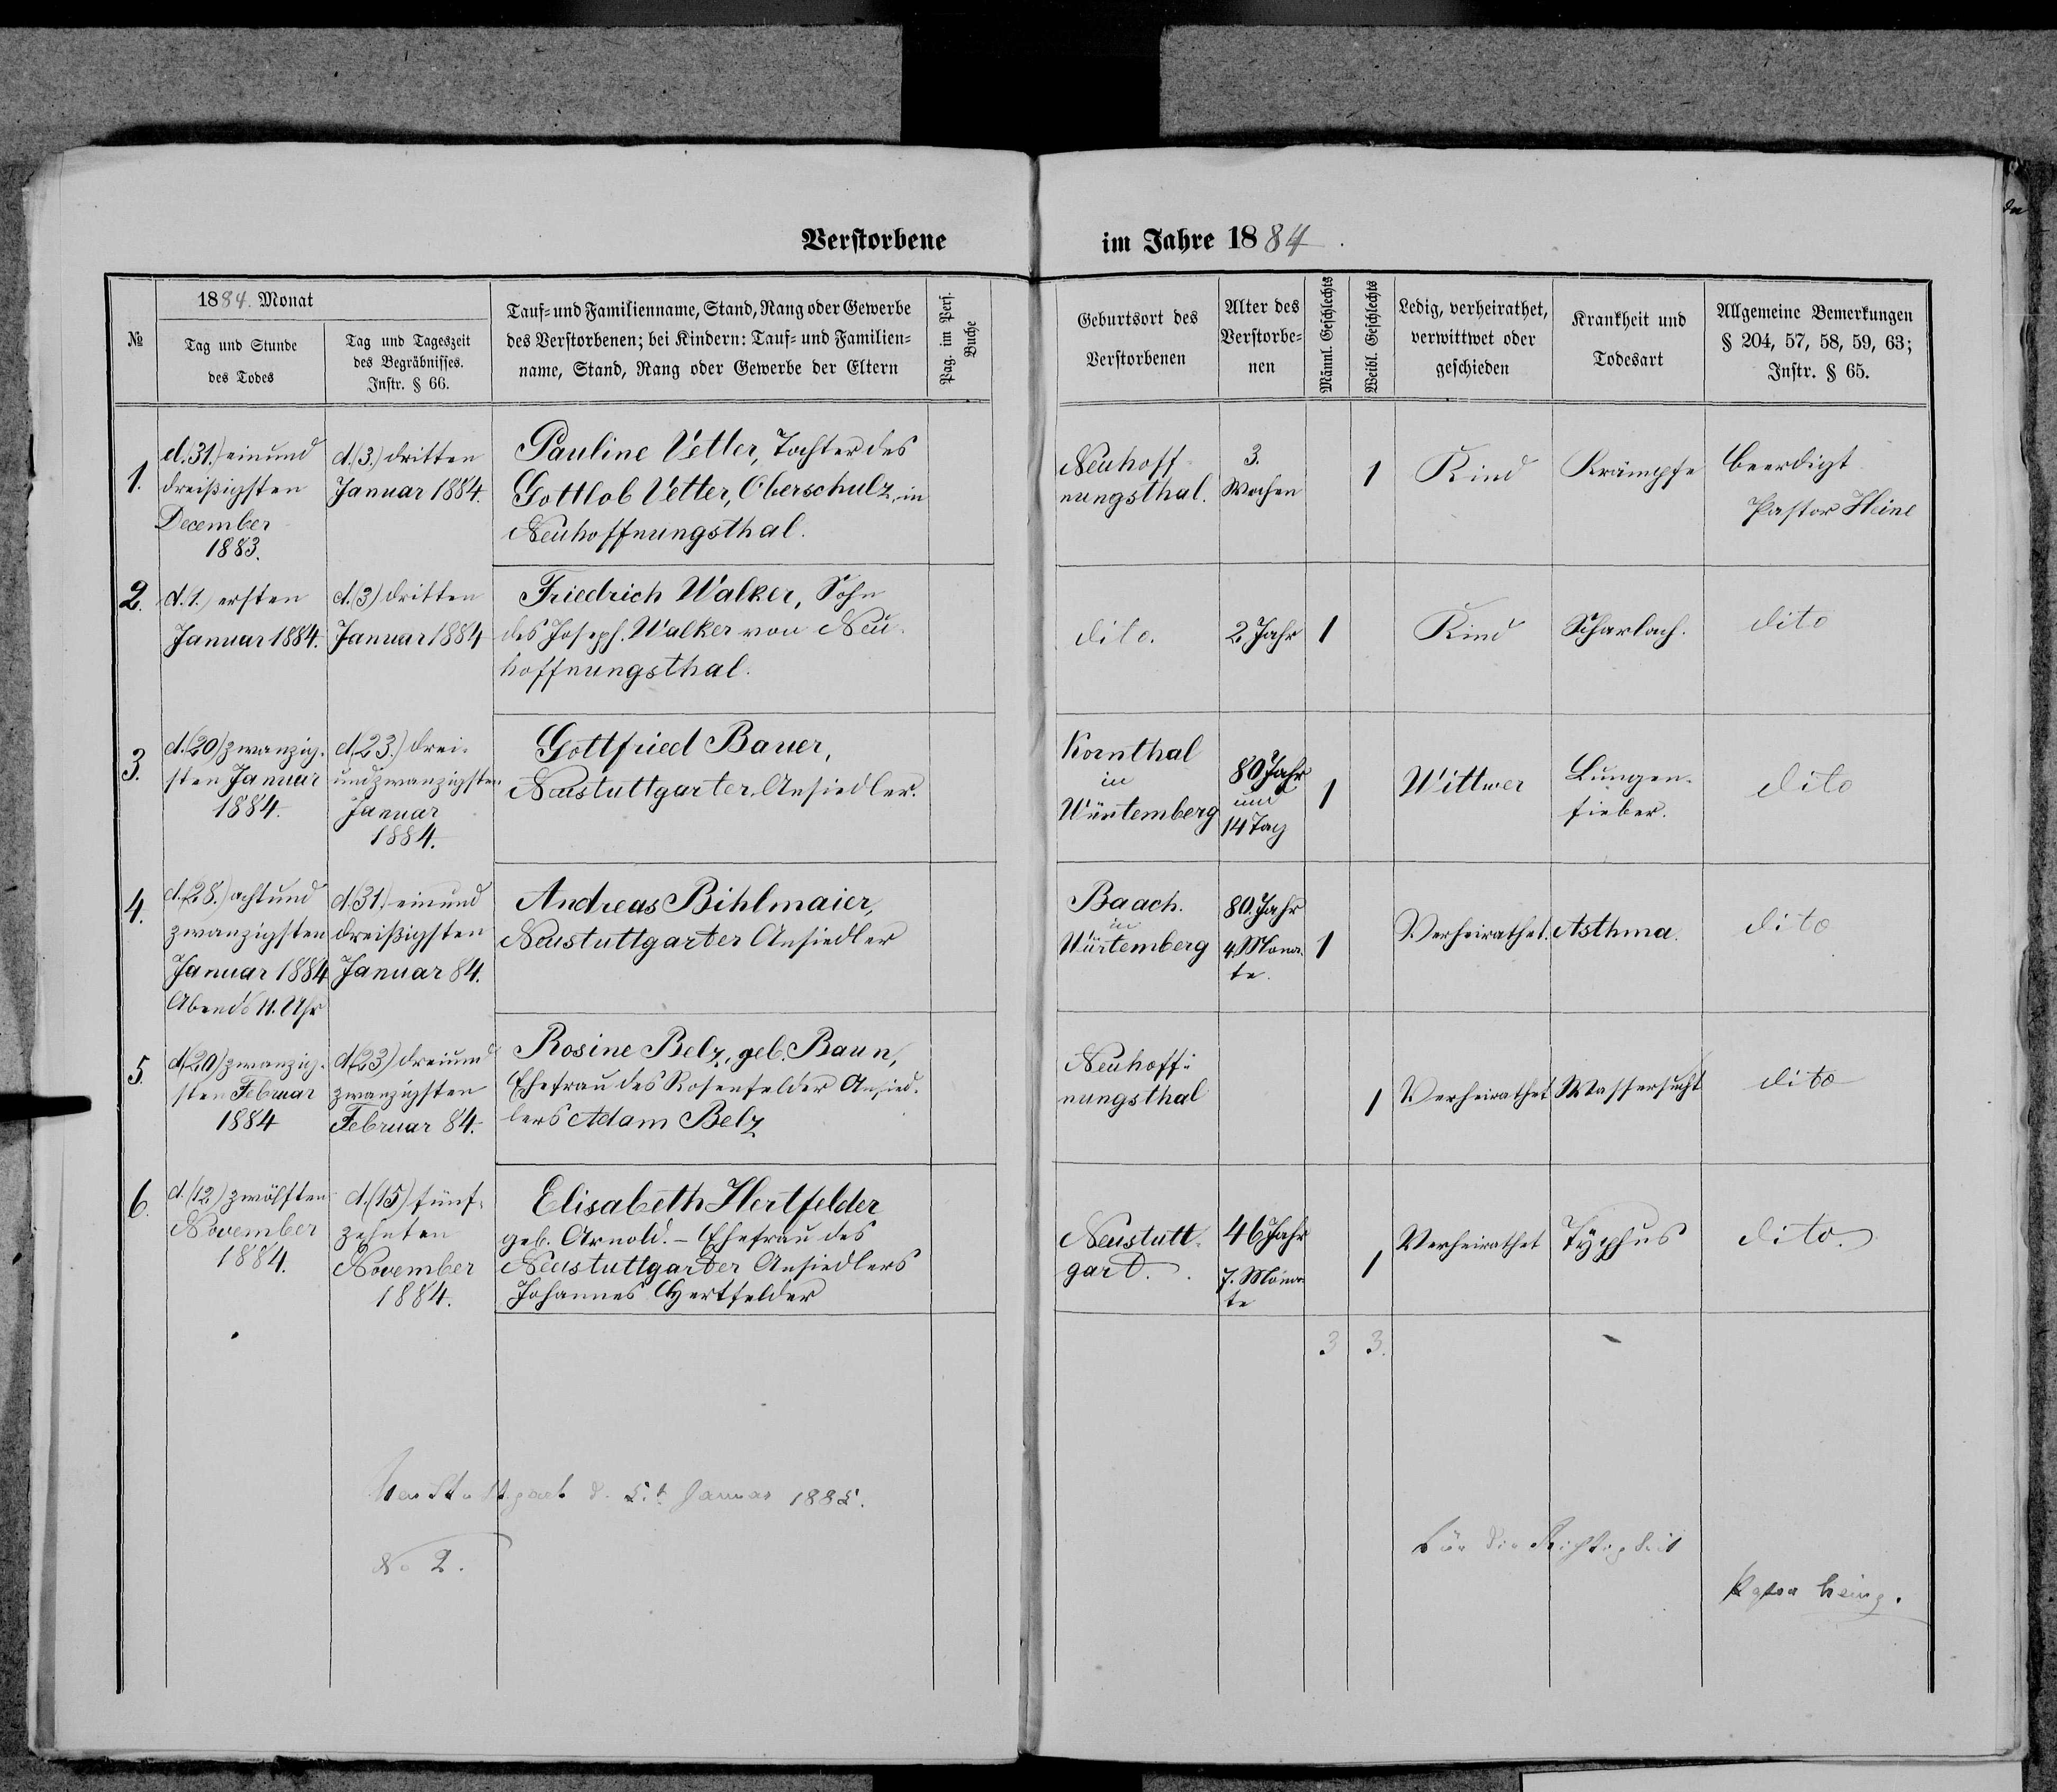 Verstorbene im Jahre 1884.
№
1884. Monat
Tag und Stunde
des Todes
Tag und Tageszeit
des Begräbnisses.
Instr. § 66.
Tauf- und Familienname, Stand, Rang oder Gewerbe
des Verstorbenen; bei Kindern: Tauf- und Familien-
name, Stand, Rang oder Gewerbe der Eltern
Pag. im Pers.
Buche
Geburtsort des
Verstorbenen
Alter des
Verstorbe-
nen
Männl. Geschlechts
Weibl. Geschlechts
Ledig, verheirathet,
verwittwet oder
geschieden
Krankheit und
Todesart
Allgemeine Bemerkungen
§ 204, 57, 58, 59, 63;
Instr. § 65.
1.
d. 31.) einund
dreißigsten
December
1883.
d. (3.) dritten
Januar 1884.
Pauline Vetter, Tochter des
Gottlob Vetter, Oberschulz, in
Neuhoffnungsthal.
Neuhoff-
nungsthal.
3.
Wochen
1
Kind
Krämpfe
beerdigt
Pastor Heine
2.
d. 1.) ersten
Januar 1884.
d. (3) dritten
Januar 1884
Friedrich Walker, Sohn
des Joseph. Walker von Neu-
hoffnungsthal.
dito.
2 Jahr
1
Kind
Scharlach.
dito
3.
d. (20) zwanzig-
sten Januar
1884.
d. (23.) drei-
undzwanzigsten
Januar
1884.
Gottfried Bauer,
Neustuttgarter Ansiedler.
Kornthal
in
Würtemberg
80 Jahr
und
14 Tag
1
Wittwer
Lungen-
fieber.
dito
4.
d. (28.) achtund
zwanzigsten
Januar 1884
Abends 11. Uhr
d. (31.) einund
dreißigsten
Januar 84.
Andreas Bihlmaier,
Neustuttgarter Ansiedler
Baach.
in
Würtemberg
80. Jahr
4. Mona-
te.
1
Verheirathet.
Asthma.
dito
5.
d. (20) zwanzig-
sten Februar
1884
d. (23) dreiund
zwanzigsten
Februar 84.
Rosine Belz, geb. Baun,
Ehefrau des Rosenfelder Ansied-
lers Adam Belz
Neuhoff-
nungsthal
1
Verheirathet
Wassersucht
dito
6.
d. (12.) zwölften
November
1884.
d. (15) fünf-
zehnten
November
1884.
Elisabeth Hertfelder
geb. Arnold. – Ehefrau des
Neustuttgarter Ansiedlers
Johannes Hertfelder
Neustutt-
gart.
46 Jahr
7. Mona-
te
1
Verheirathet
Typhus
dito.
3 3.
Neustuttgart d. 5.t Januar 1885.
No 2.
Für die Richtigkeit
Pastor Heine.